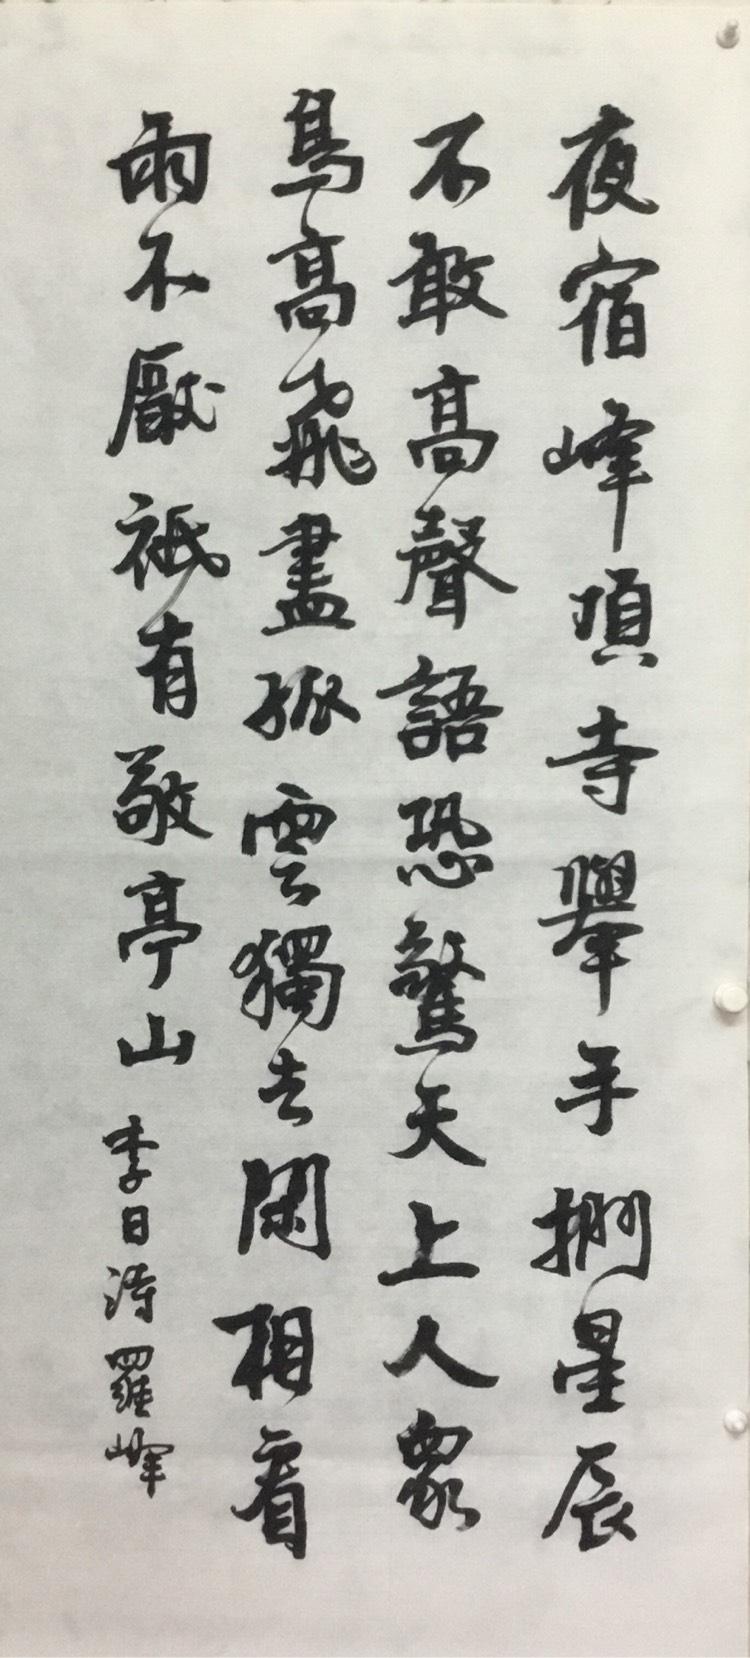 夜宿峰頂寺舉手捫星辰
不敢高聲語恐驚天上人眾
鳥高飛盡孤雲獨去閑相看
兩不厭祇有敬亭山 李白詩 羅峰